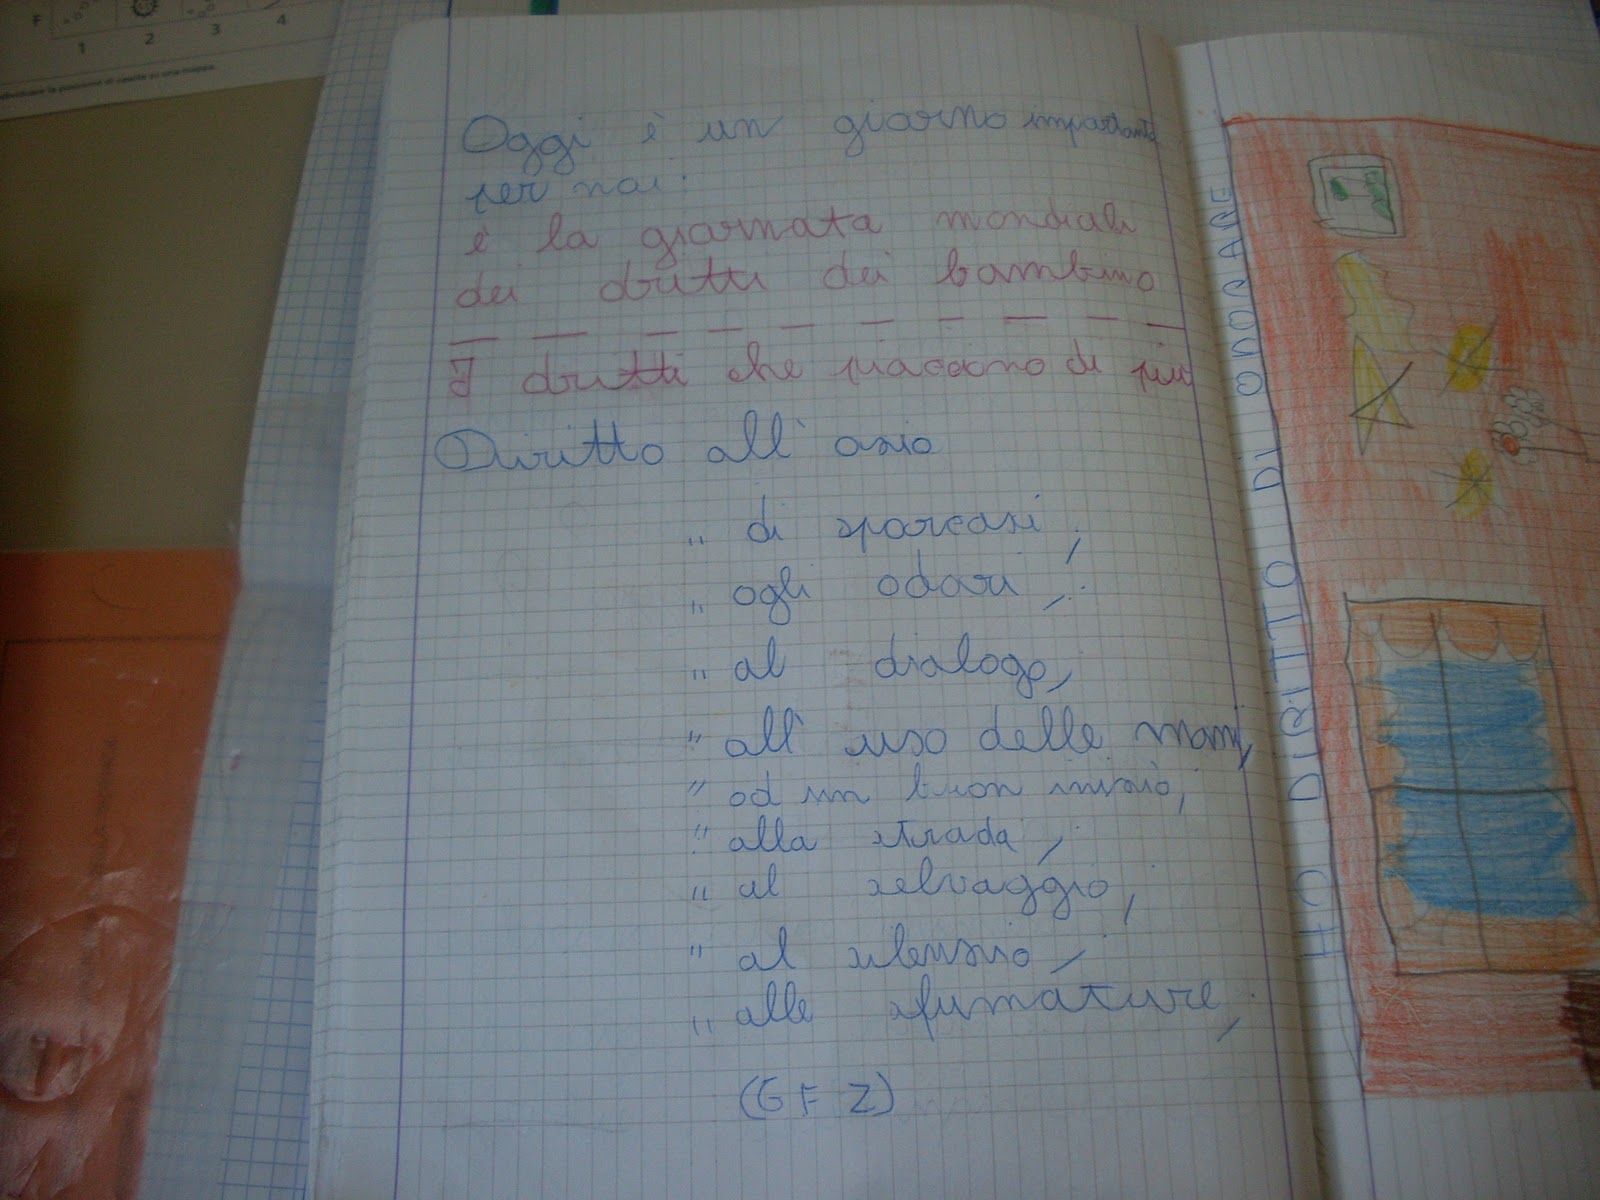 Oggi è un giorno importante
per noi:
è la giornata mondiale
dei diritti dei bambino
I diritti che piacciono di più
Diritto all' ozio
" di sporcasi,
" agli odori,
" al dialogo,
" all' uso delle mani,
" ad un buon inizio,
" alla strada,
" al selvaggio,
" al silenzio,
" alle sfumature,
(G F Z)
HO DIRITTO DI ODORARE
F
1 2 3 4